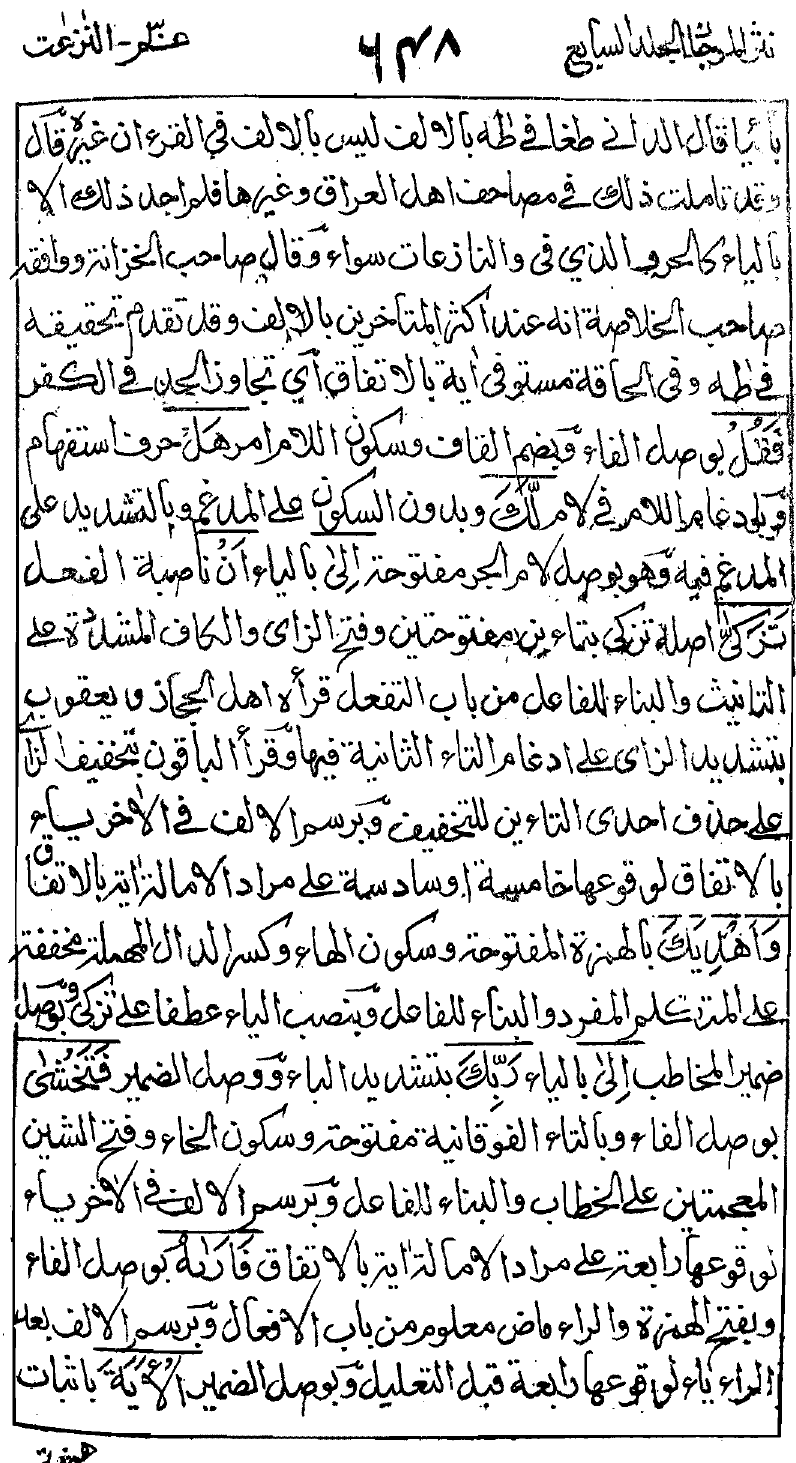 نثر المرجان الجلد السابع ٦٣٨ عمّ - النٰزعٰت
بالياء قال الداني طغا في طٰه بالالف ليس بالالف في القرءان غيره قال
وقد تاملت ذلك في مصاحف اهل العراق وغيرها فلم اجد ذلك الا
بالياء كالحرف الذي في والنازعات سواء وقال صاحب الخزانة ووافقه
صاحب الخلاصة انه عند اكثر المتأخرين بالالف وقد تقدم تحقيقه
في طٰه وفي الحاقة مستوفى اٰية بالاتفاق أي تجاوز الحد في الكفر
فَقُلْ بوصل الفاء وبضم القاف وسكون اللام امر هَل حرف استفهام
وبادغام اللام في لام لَّكَ وبدون السكون على المدغم وبالتشديد على
المدغم فيه وهو بوصل لام الجر مفتوحة إِلىٰ بالياء أَنْ ناصبة الفعل
تَزَكّىٰ اصله تتزكى بتاءين مفتوحتين وفتح الزاى والكاف المشددة على
التانيث والبناء للفاعل من باب التفعل قرأه اهل الحجاز ويعقوب
بتشديد الزاى على ادغام التاء الثانية فيها وقرأ الباقون بتخفيف الزا
على حذف احدى التاءين للتخفيف وبرسم الالف في الاٰخر ياء
بالاتفاق لوقوعها خامسة او سادسة على مراد الامالة اٰية بالاتفاق
وَأَهْدِيَكَ بالهمزة المفتوحة وسكون الهاء وكسر الدال المهملة مخففة
على المتكلم المفرد والبناء للفاعل وبنصب الياء عطفا على تزكى وبوصل
ضمير المخاطب إِلىٰ بالياء رَبِّكَ بتشديد الباء ووصل الضمير فَتَخْشىٰ
بوصل الفاء وبالتاء الفوقانية مفتوحة وسكون الخاء وفتح الشين
المعجمتين على الخطاب والبناء للفاعل وبرسم الالف في الاٰخر ياء
لوقوعها رابعة على مراد الامالة اٰية بالاتفاق فَأَرٰىهُ بوصل الفاء
وبفتح الهمزة والراء ماض معلوم من باب الافعال وبرسم الالف بعد
الراء ياء لوقوعها رابعة قبل التعليل وبوصل الضمير الْاٰيَةَ باثبات
همزة